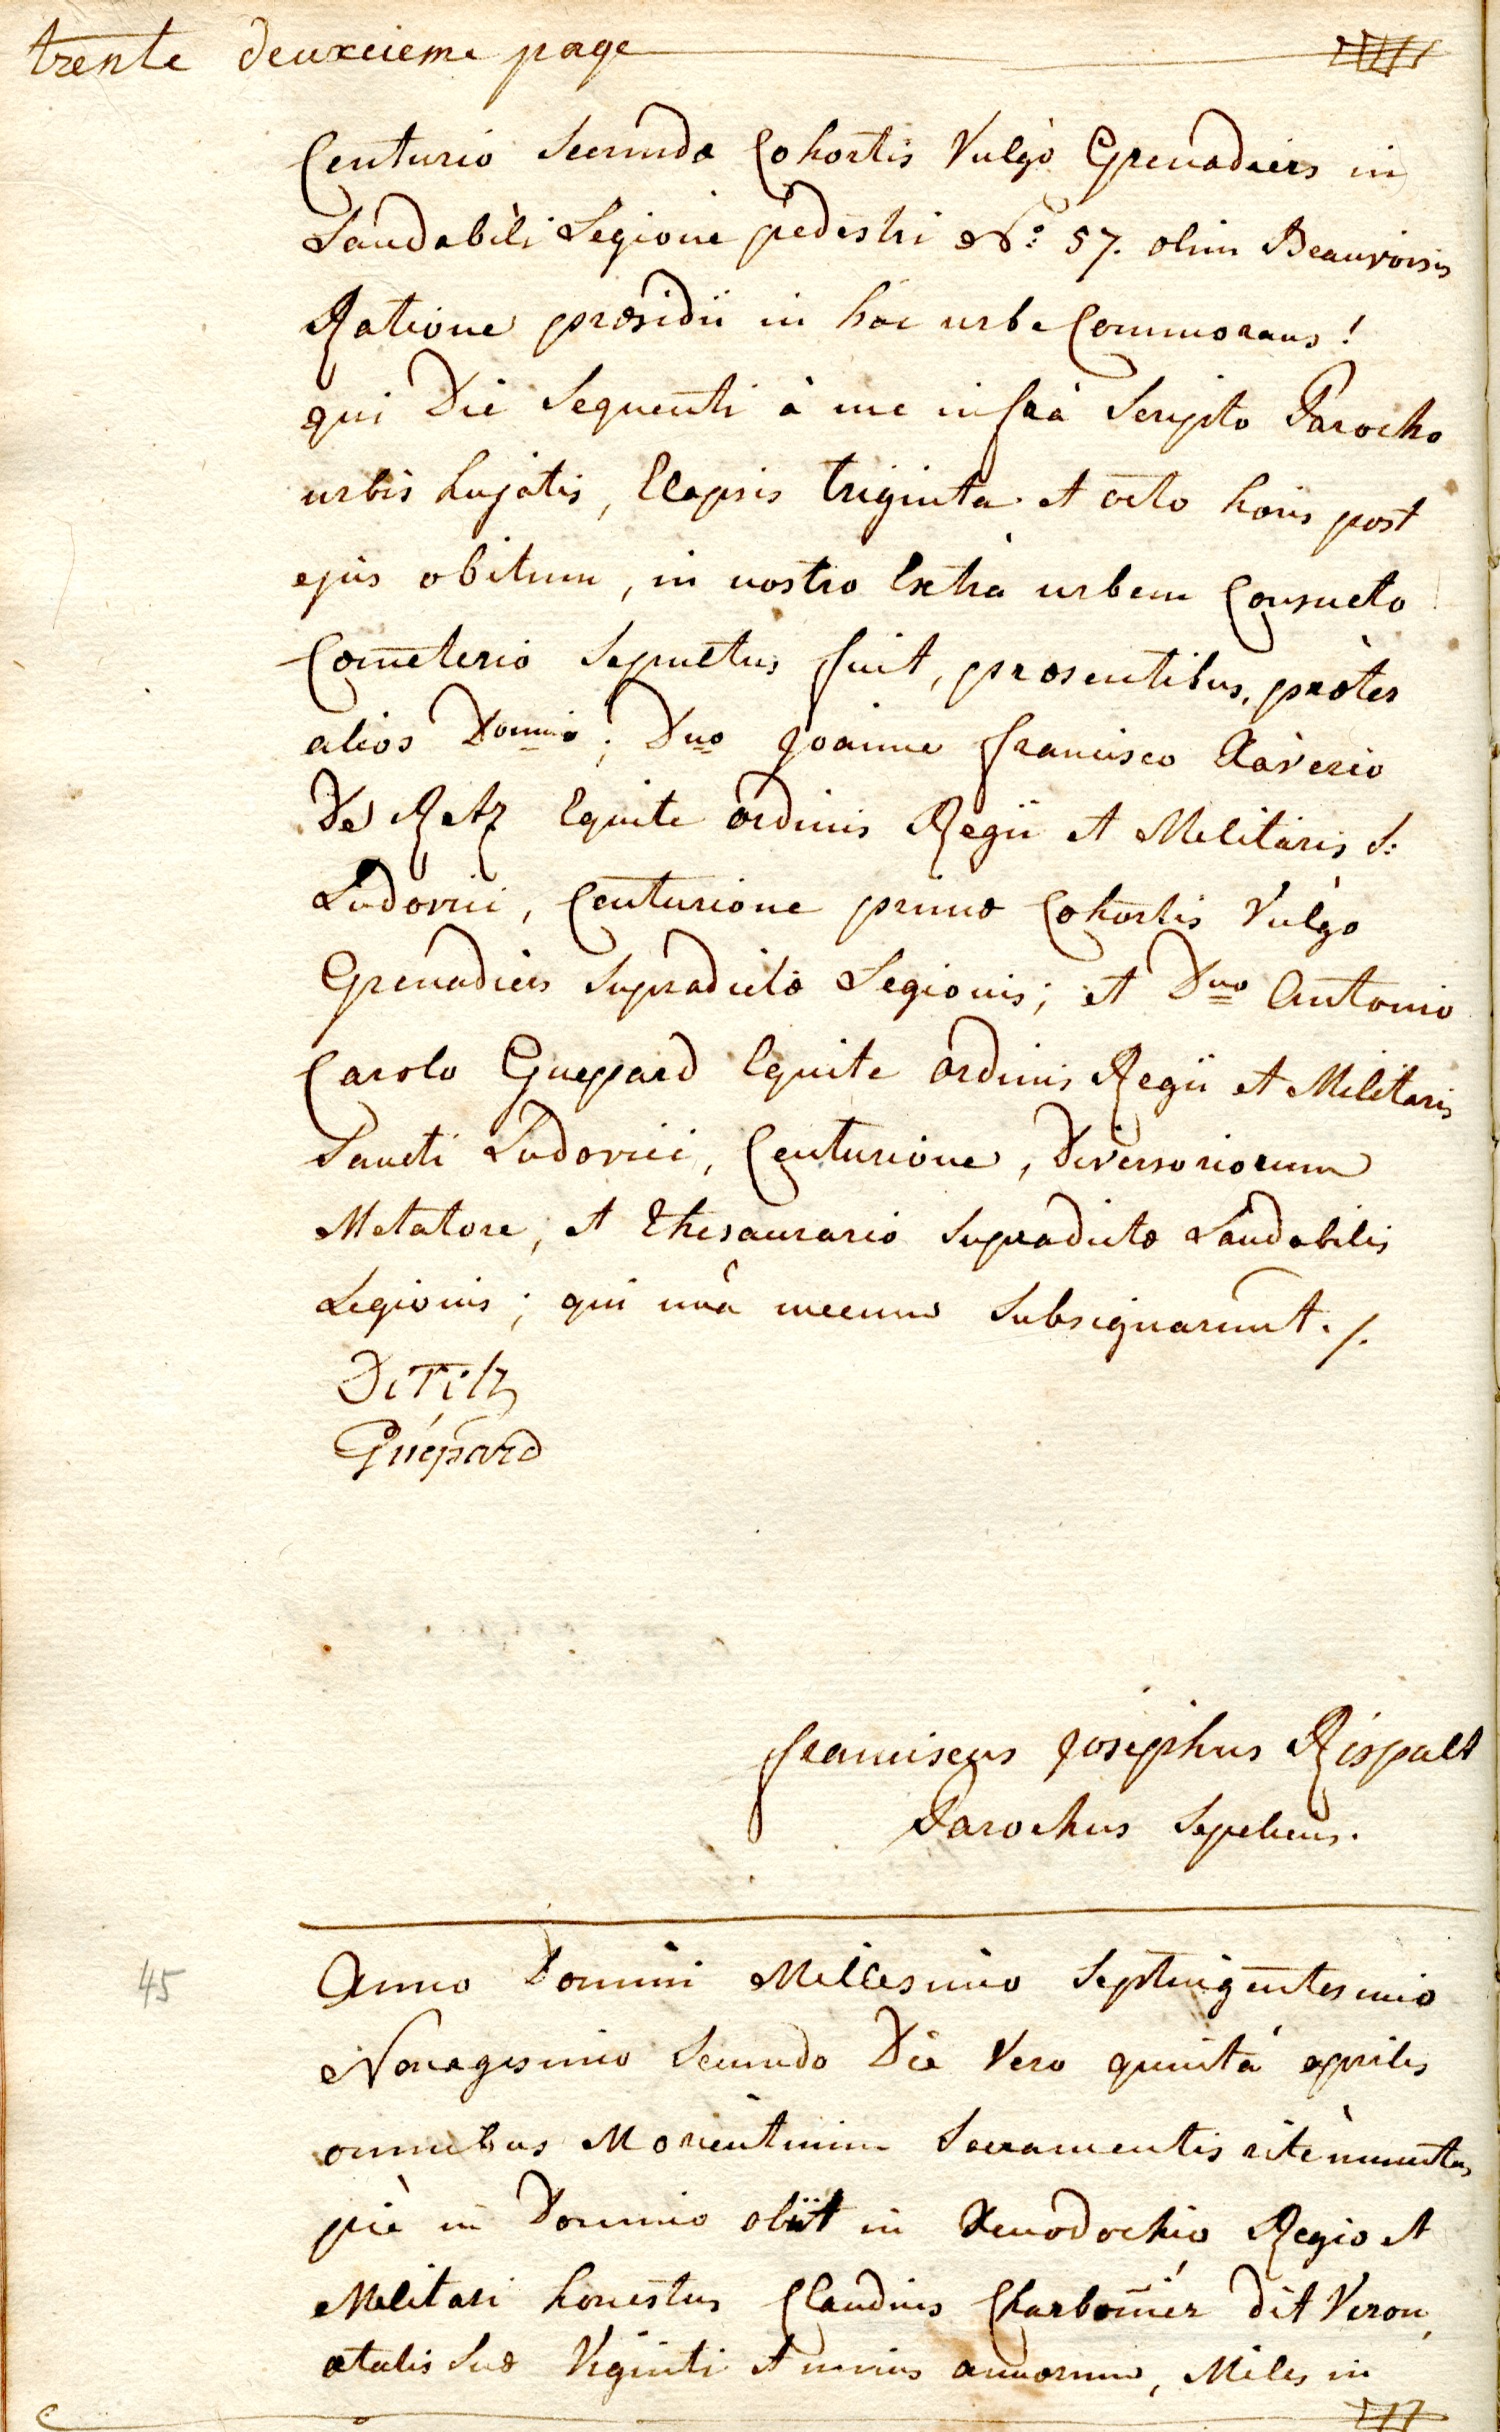 trente deuxcieme page
Centurio Secundæ Cohortis Vulgò Grenadiers in
Laudabili Legione pedestri N.º 57. olim Beauvoisis
Ratione præsidii in hac urbe Commorans!
qui Die Sequenti à me infrà Scripto Parocho
urbis hujatis, Elapsis triginta et octo horis post
ejus obitum, in nostro Extrà urbem Consueto
Cœmeterio Sepultus fuit, præsentibus, præter
alios ; Dno Joanne francisco Xaverio
De Retz Equite ordinis Regii et Militaris S:
Ludovici, Centurione primæ Cohortis Vulgò
Grenadiers Supradictæ Legionis; et Dno Antonio
Carolo Gueppard Equite ordinis Regii et Militaris
Sancti Ludovici, Centurione, Diversoriorum
Metatore, et thesaurario Supradictæ Laudabilis
Legionis; qui unà mecum Subsignarunt ./.
Guépard
franciscus Josephus Rispalt
Parochus Sepeliens.
45
Anno Domini Millesimo Septingentesimo
Nonagesimo Secundo Die Vero quintâ aprilis
omnibus Morientium Sacramentis ritè munitus
piè in Domino obiit in Xenodochio Regio et
Militari honestus Claudius Charbonnier dit Veron,
ætatis Suæ Viginti et unius annorum, Miles in